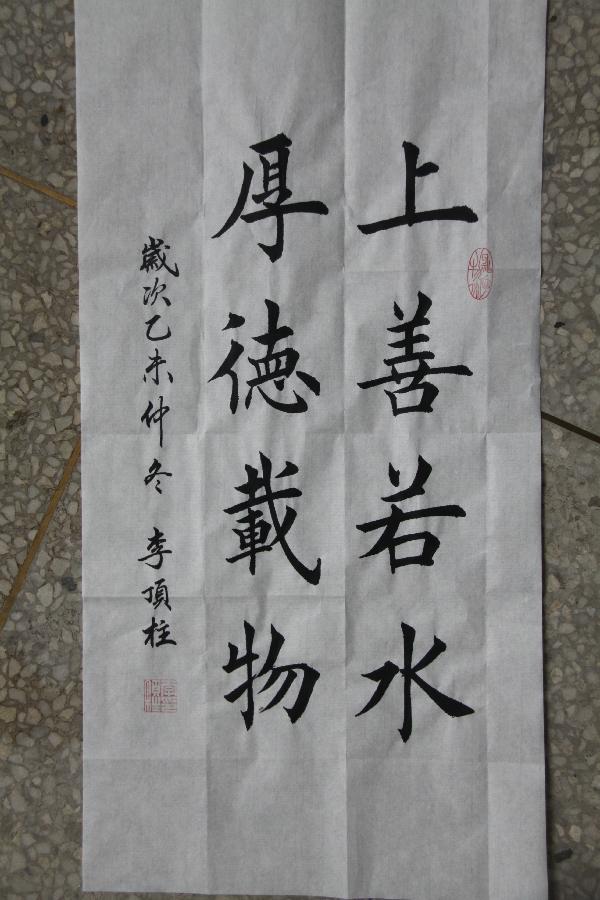 上善若水
厚德載物
歲次乙未仲冬 李頂柱